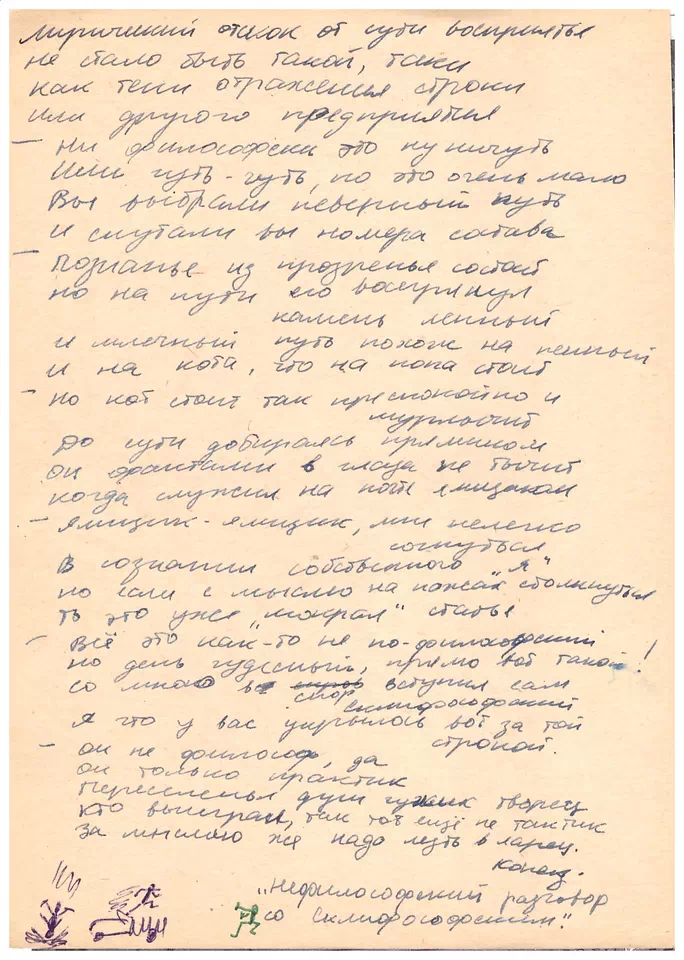 лирический отскок от сути восприятья
не стало быть такой, таки
как тени отраженья строки
или другого предприятья
– Ни философски это ну ничуть
Или чуть-чуть, но это очень мало
Вы выбрали неверный путь
и спутали вы номера состава
– Познанье из прозренья состоит
но на пути его воспрянул
камень ленный
и млечный путь похож на пенный
и на кота, что на попа стоит
– но кот стоит так преспокойно и
мурлычит
до сути добираясь прямиком
он фактами в глаза не тычит
когда служил на почте ямщиком
– ямщик-ямщик, мне нелегко
согнуться
В сознании собственного „Я"
но если с мыслью на ножах столкнуться
то это уже „мокрая" статья
– Всё это как-то не по-философски
но день чудесный, прямо вот такой!
со мною в спор вступил сам
Склифософский
Я что у вас укрылось вот за той
строкой.
– он не философ, да
он только практик
переселенья душ творец
кто выиграл, тот ещё не тактик
за мыслью же надо лезть в ларец.
конец.
„Нефилософский разговор
со Склифософским".